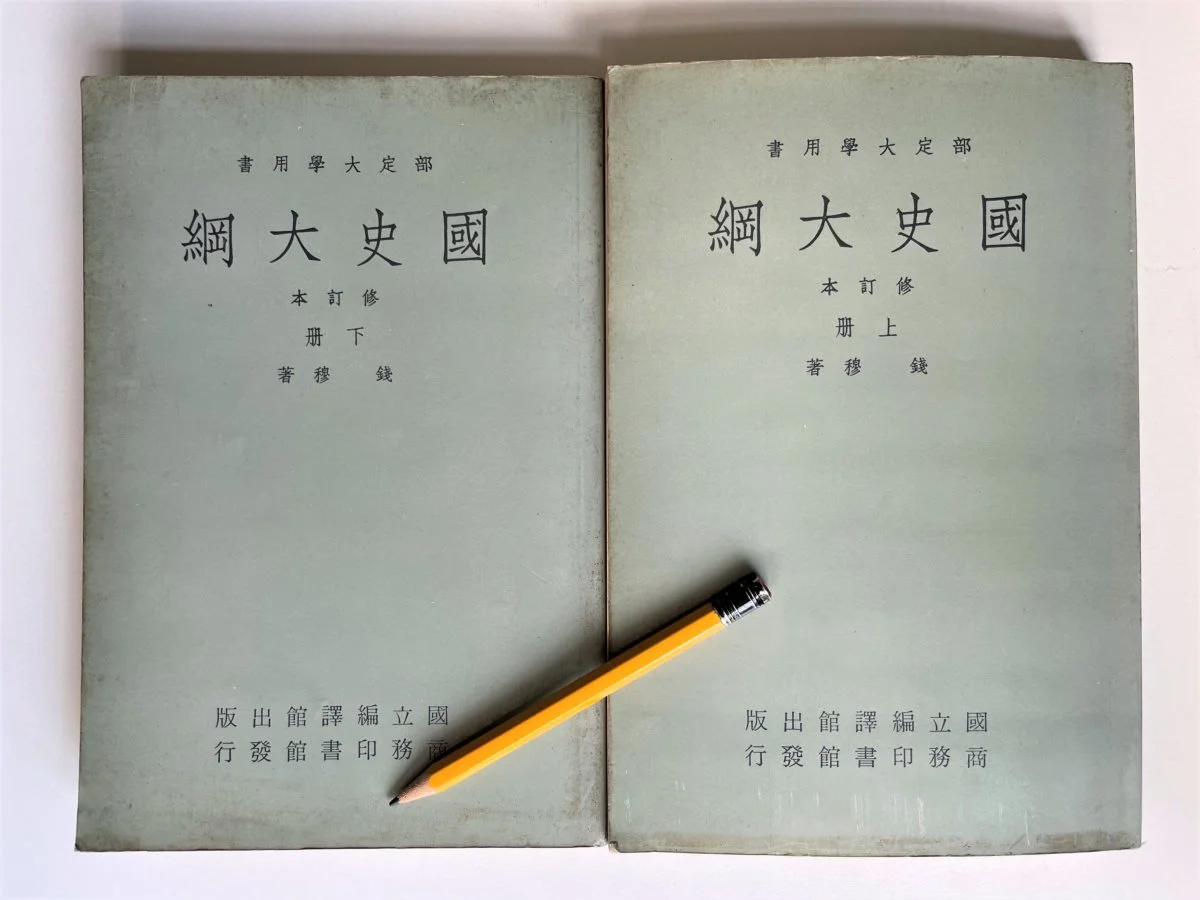 部定大學用書
國史大綱
修訂本
上册
錢 穆著
國立編譯館出版
商務印書館發行
部定大學用書
國史大綱
修訂本
下册
錢 穆著
國立編譯館出版
商務印書館發行